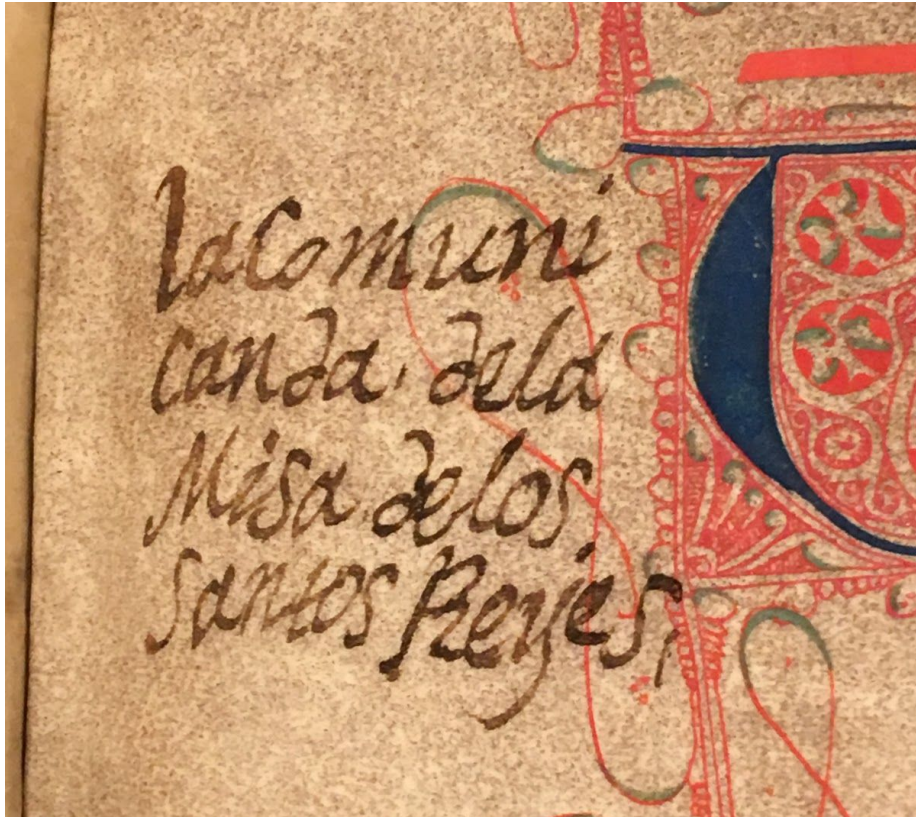 la Comuni
canda. dela
Misa delos
santos Reyes,